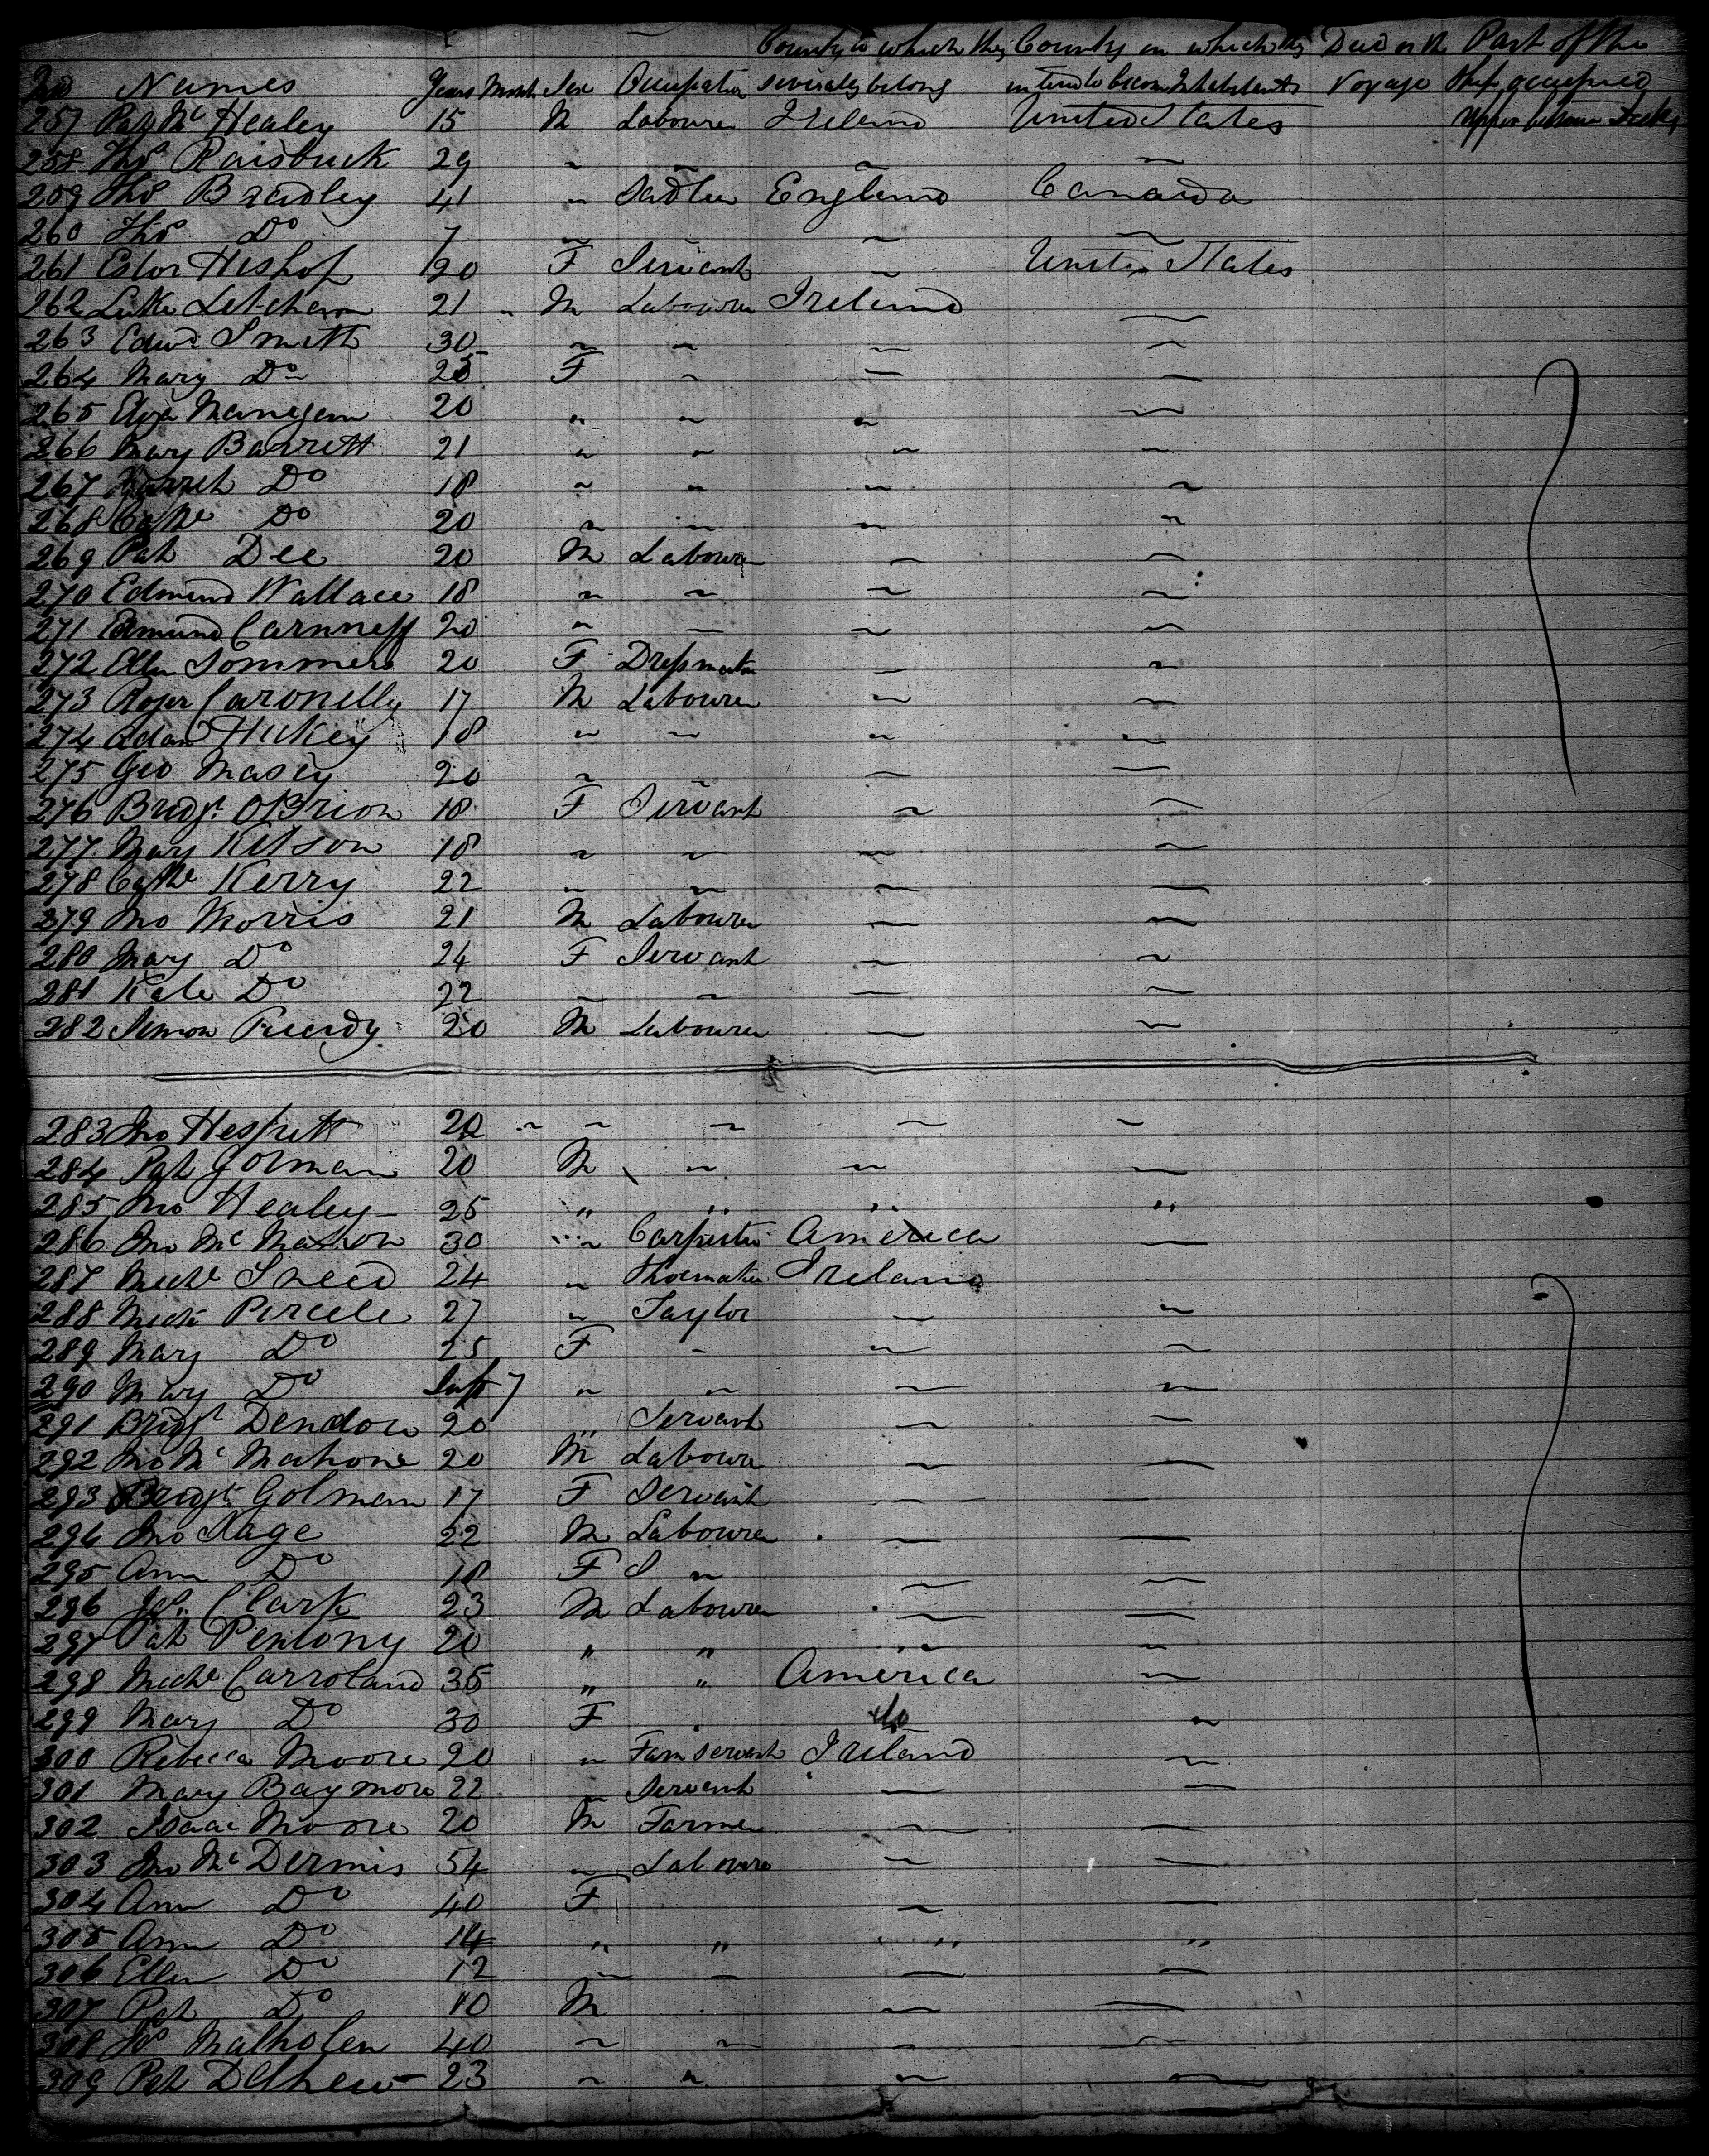 Country to which they Country in which they Died on the Part of the
No Names Years Month Sex Occupation severally belong intend to become Inhabitants Voyage Ship occupied
257 Healey 15 M Labourer Ireland United States Upper between Decks
258 Thos Raisbuck 29 " ~ ~
259 Thos Bradley 41 " Sadler England Canada
260 Thos Do 7 ~ ~ ~
261 Ester Heshof 20 F Servant ~ United States
262 Luke Letcham 21 " M Labourer Ireland ~
263 Edwd Smith 30 ~ ~ ~ ~
264 Mary Do 25 F ~ ~ ~
265 Manegan 20 " ~ " ~
266 Mary Barrett 21 " " " ~
267 Do 18 ~ " ~ ~
268 Cathe Do 20 ~ ~ ~ ~
269 Pat Dee 20 M Labourer ~ ~
270 Edmund Wallace 18 ~ ~ ~ ~
271 Edmund Carnneff 20 " ~ ~ ~
272 Ellen Sommers 20 F Dressmaker ~ ~
273 Roger Caronelly 17 M Labourer ~ ~
274 Adam Hickey 18 " ~ " ~
275 Geo Masey 20 ~ ~ ~ ~
276 Bridgt OBrion 18 F Servant ~ ~
277 Mary Kitson 18 ~ ~ ~ ~
278 Cathe Kerry 22 ~ ~ ~ ~
279 Jno Morris 21 M Labourer ~ ~
280 Mary Do 24 F Servant ~ ~
281 Kate Do 22 ~ ~ ~ ~
282 Simon Purdy 20 M Labourer ~ ~
283 Jno Hesfutt 20 ~ ~ ~ ~ ~
284 Pat Golman 20 M ~ ~ ~
285 Jno Healey 25 " " " "
286 Jno Mc Mahon 30 " Carpenter America ~
287 Miche Sneed 24 " Shoemaker Ireland
288 Miche Percele 27 " Taylor ~ ~
289 Mary Do 25 F ~ ~ ~
290 Mary Do Inft 7 ~ ~ ~ ~
291 Bridgt Dendon 20 " Servant ~ ~
292 Jno Mc Mahone 20 M Labourer ~ ~
293 Bridgt Golman 17 F Servant ~ ~
294 Jno Nage 22 M Labourer ~ ~
295 Ann Do 18 F S ~ ~ ~
296 Clark 23 M Labourer ~ ~
297 Pat Penlony 20 " " " ~
298 Miche Carroland 35 " " America ~
299 Mary Do 30 F do ~
300 Rebecca Moore 20 ~ Farm Servant Ireland ~
301 Mary Baymore 22 ~ Servant ~ ~
302 Isaac Moore 20 M Farmer ~ ~
303 Jno Mc Dermis 54 ~ Labourer ~ ~
304 Ann Do 40 F ~ ~
305 Ann Do 14 " " " "
306 Ellen Do 12 ~ ~ ~ ~
307 Pat Do 10 M ~ ~
308 Malholen 40 ~ ~ ~ ~
309 Pat 23 ~ ~ ~ ~